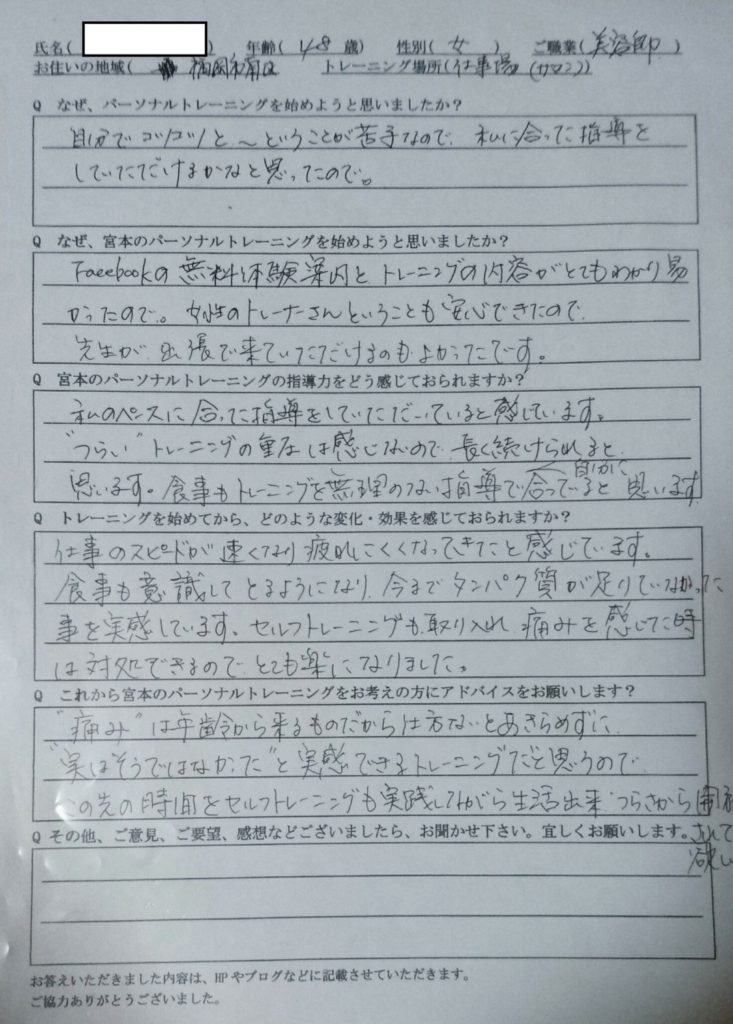 氏名( ) 年齢( 48 歳) 性別( 女 ) ご職業( 美容師 )
お住いの地域( 福岡市南区 トレーニング場所( 仕事場 (サロン))
Q なぜ、パーソナルトレーニングを始めようと思いましたか?
自分でコツコツと〜ということが苦手なので、私に合った指導を
していただけるかなと思ったので。
Q なぜ、宮本のパーソナルトレーニングを始めようと思いましたか?
Facebookの無料体験案内とトレーニングの内容がとてもわかり易
かったので。女性のトレーナーさんということも安心できたので
先生が出張で来ていただけるのもよかったです。
Q 宮本のパーソナルトレーニングの指導力をどう感じておられますか?
私のペースに合った指導をしていただいていると感じています。
"つらい"トレーニングの重圧は感じないので長く続けられると
思います。食事もトレーニングも無理のない指導で自分に合ってると思います
Q トレーニングを始めてから、どのような変化・効果を感じておられますか?
仕事のスピードが速くなり疲れにくくなってきたと感じています。
食事も意識してとるようになり、今までタンパク質が足りていなかった
事を実感しています、セルフトレーニングも取り入れ痛みを感じた時
は対処できるのでとても楽になりました。
Q これから宮本のパーソナルトレーニングをお考えの方にアドバイスをお願いします?
"痛み"は年齢から来るものだから仕方ないとあきらめずに
"実はそうではなかった"と実感できるトレーニングだと思うので
この先の時間をセルフトレーニングも実践しながら生活出来、つらさから開放
されて
欲しい
Q その他、ご意見、ご要望、感想などございましたら、お聞かせ下さい。宜しくお願いします。
お答えいただきました内容は、HPやブログなどに記載させていただきます。
ご協力ありがとうございました。